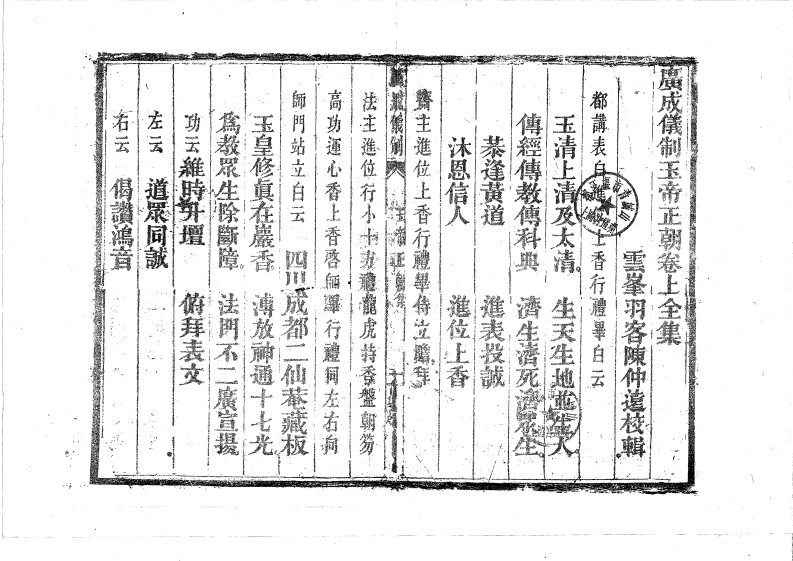 廣成儀制玉帝正朝卷上全集
雲峯羽客陳仲遠校輯
都講表白進位上香行禮畢白云
玉清上清及太清 生天生地並生人
傳經傳教傳科典 濟生濟死濟眾生
恭逢黃道 進表投誠
沐恩信人 進位上香
齋主進位上香行禮畢侍立瞻拜
廣成儀制
法主進位行小十方禮龍虎持香盤朝笏
高功運心香上香啓師畢行禮伺左右向
師門站立白云 四川成都二仙菴藏板
玉皇修眞在巖香 溥放神通十七光
爲教眾生除斷障 法門不二廣宣揚
功云 維時升壇 俯拜表文
左云 道眾同誠
右云 偈讚鴻音